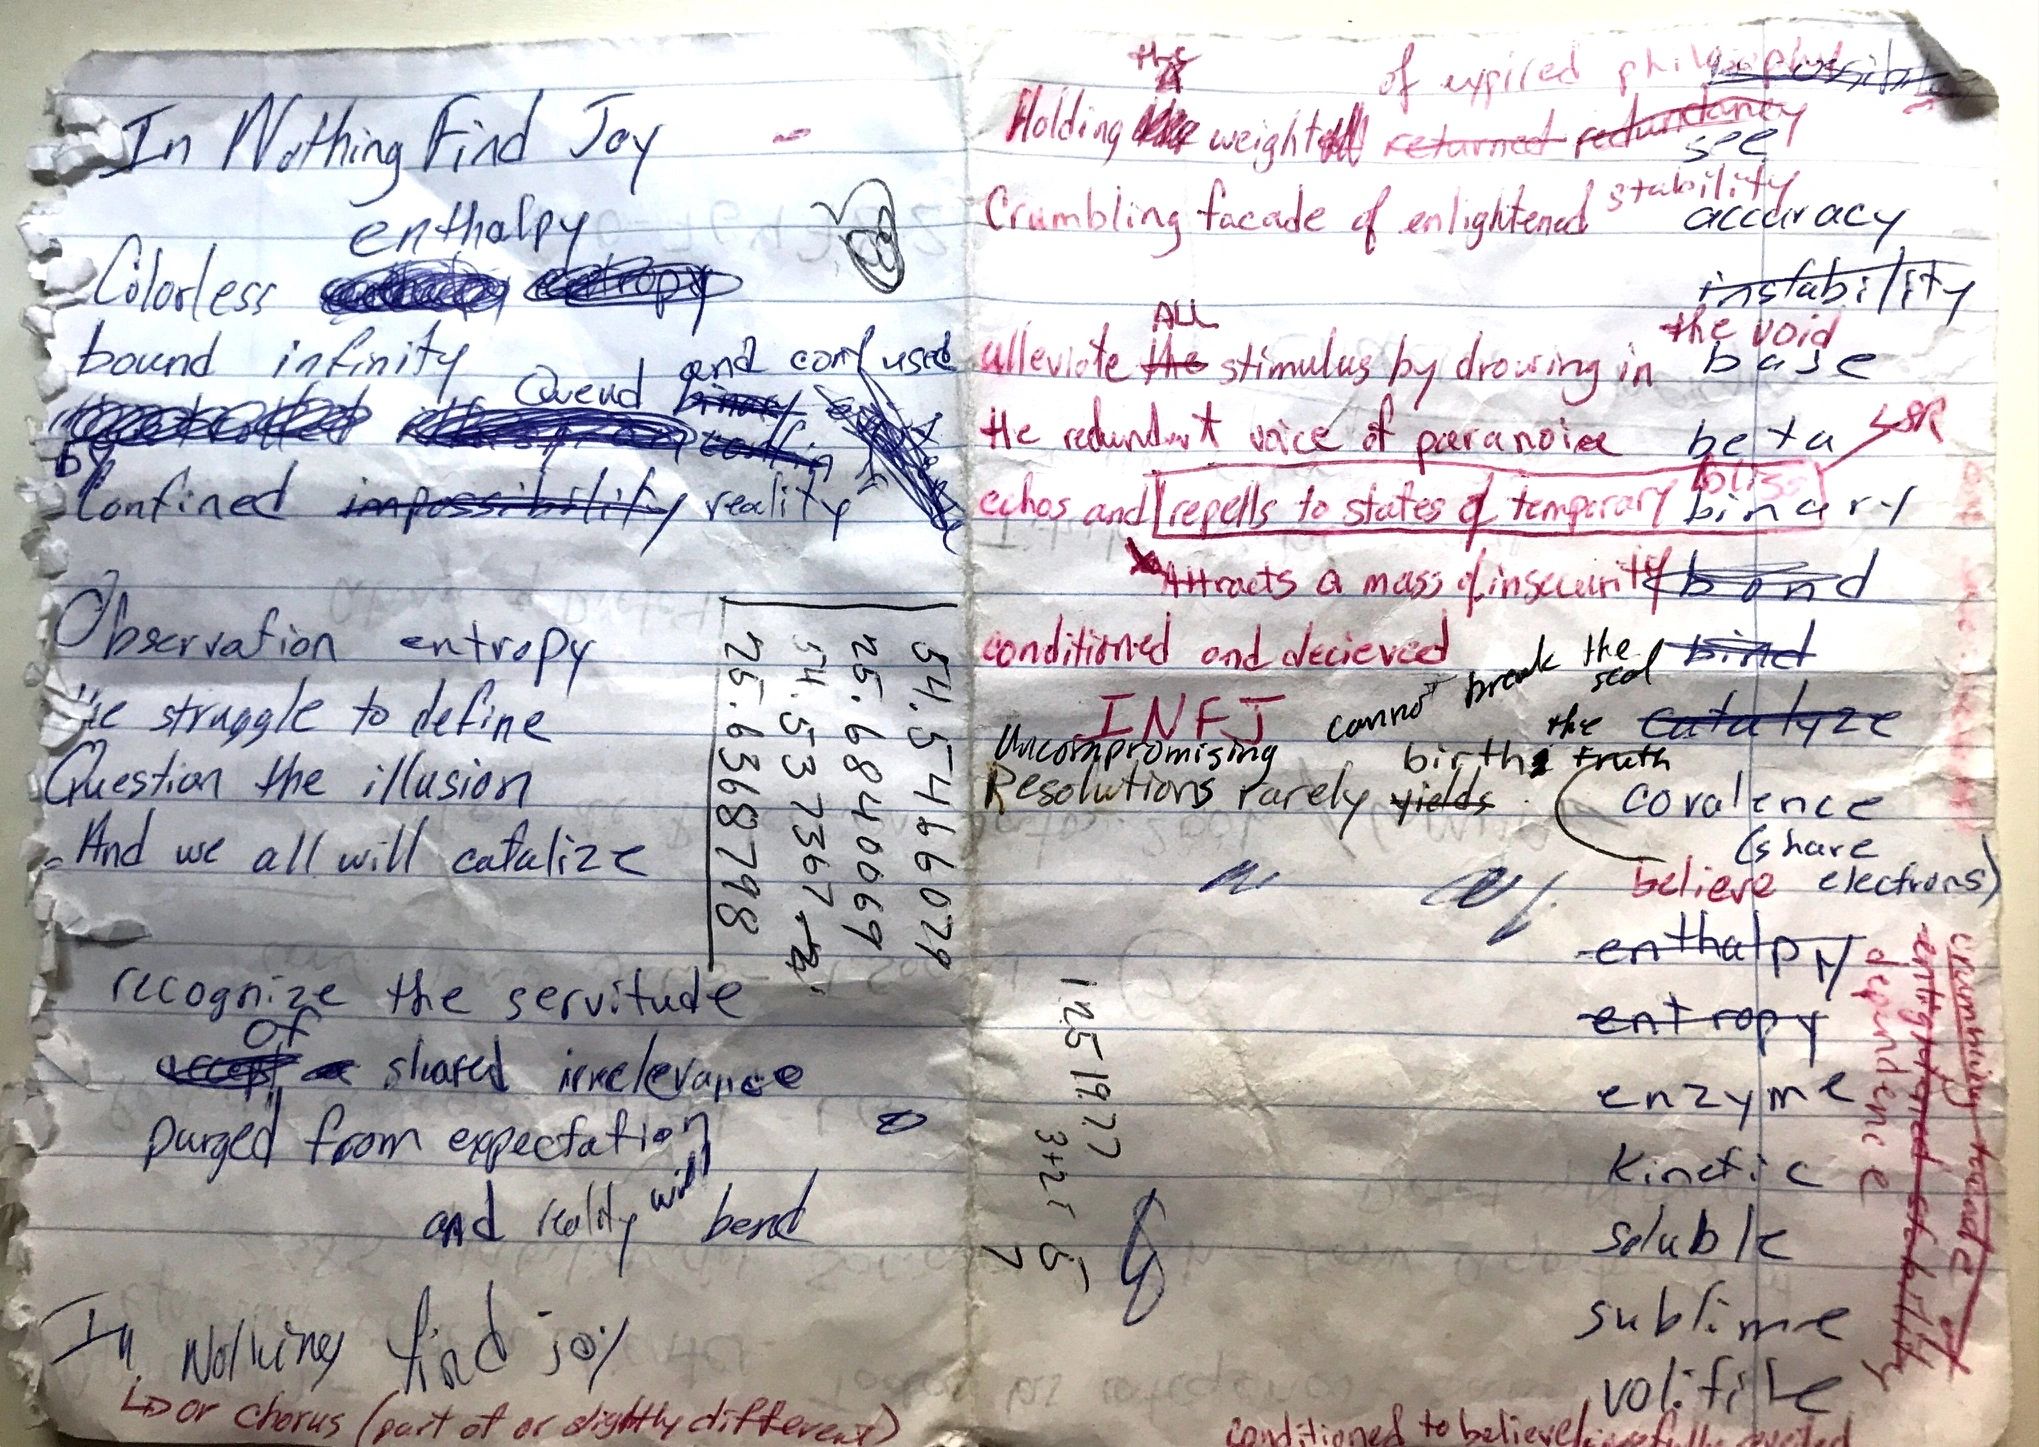 In Nothing Find Joy
enthalpy
Colorless entropy
bound infinity
and confused
by
Confined impossibility reality
Observation entropy
The struggle to define
Question the illusion
And we all will catalize
recognize the servitude
of
accept shared irrelevance
purged from expectation
and reality will bend
In Nothing find joy
or chorus (part of or slightly different)
54.5466079
25.6840069
54.537367
25.6368798
the of expired
Holding weight returned redundancy
see
Crumbling facade of enlightened stability
accuracy
instability
ALL the void
alleviate the stimulus by drowing in base
the redundant voice of paranoia beta
LSR
bliss
echos and repells to states of temporary binary
Attracts a mass of insecurity bond
conditioned and decieved bind
INFJ cannot break the seal
catalyze
Uncompromising birth the truth
Resolutions rarely yields
covalence
(share
believe electrons)
enthalpy
entropy
enzyme
kinetic
soluble
sublime
volitile
dependence
enlightened stability
crumbling facade of
125 19.77
3+2 5
7
conditioned to believe